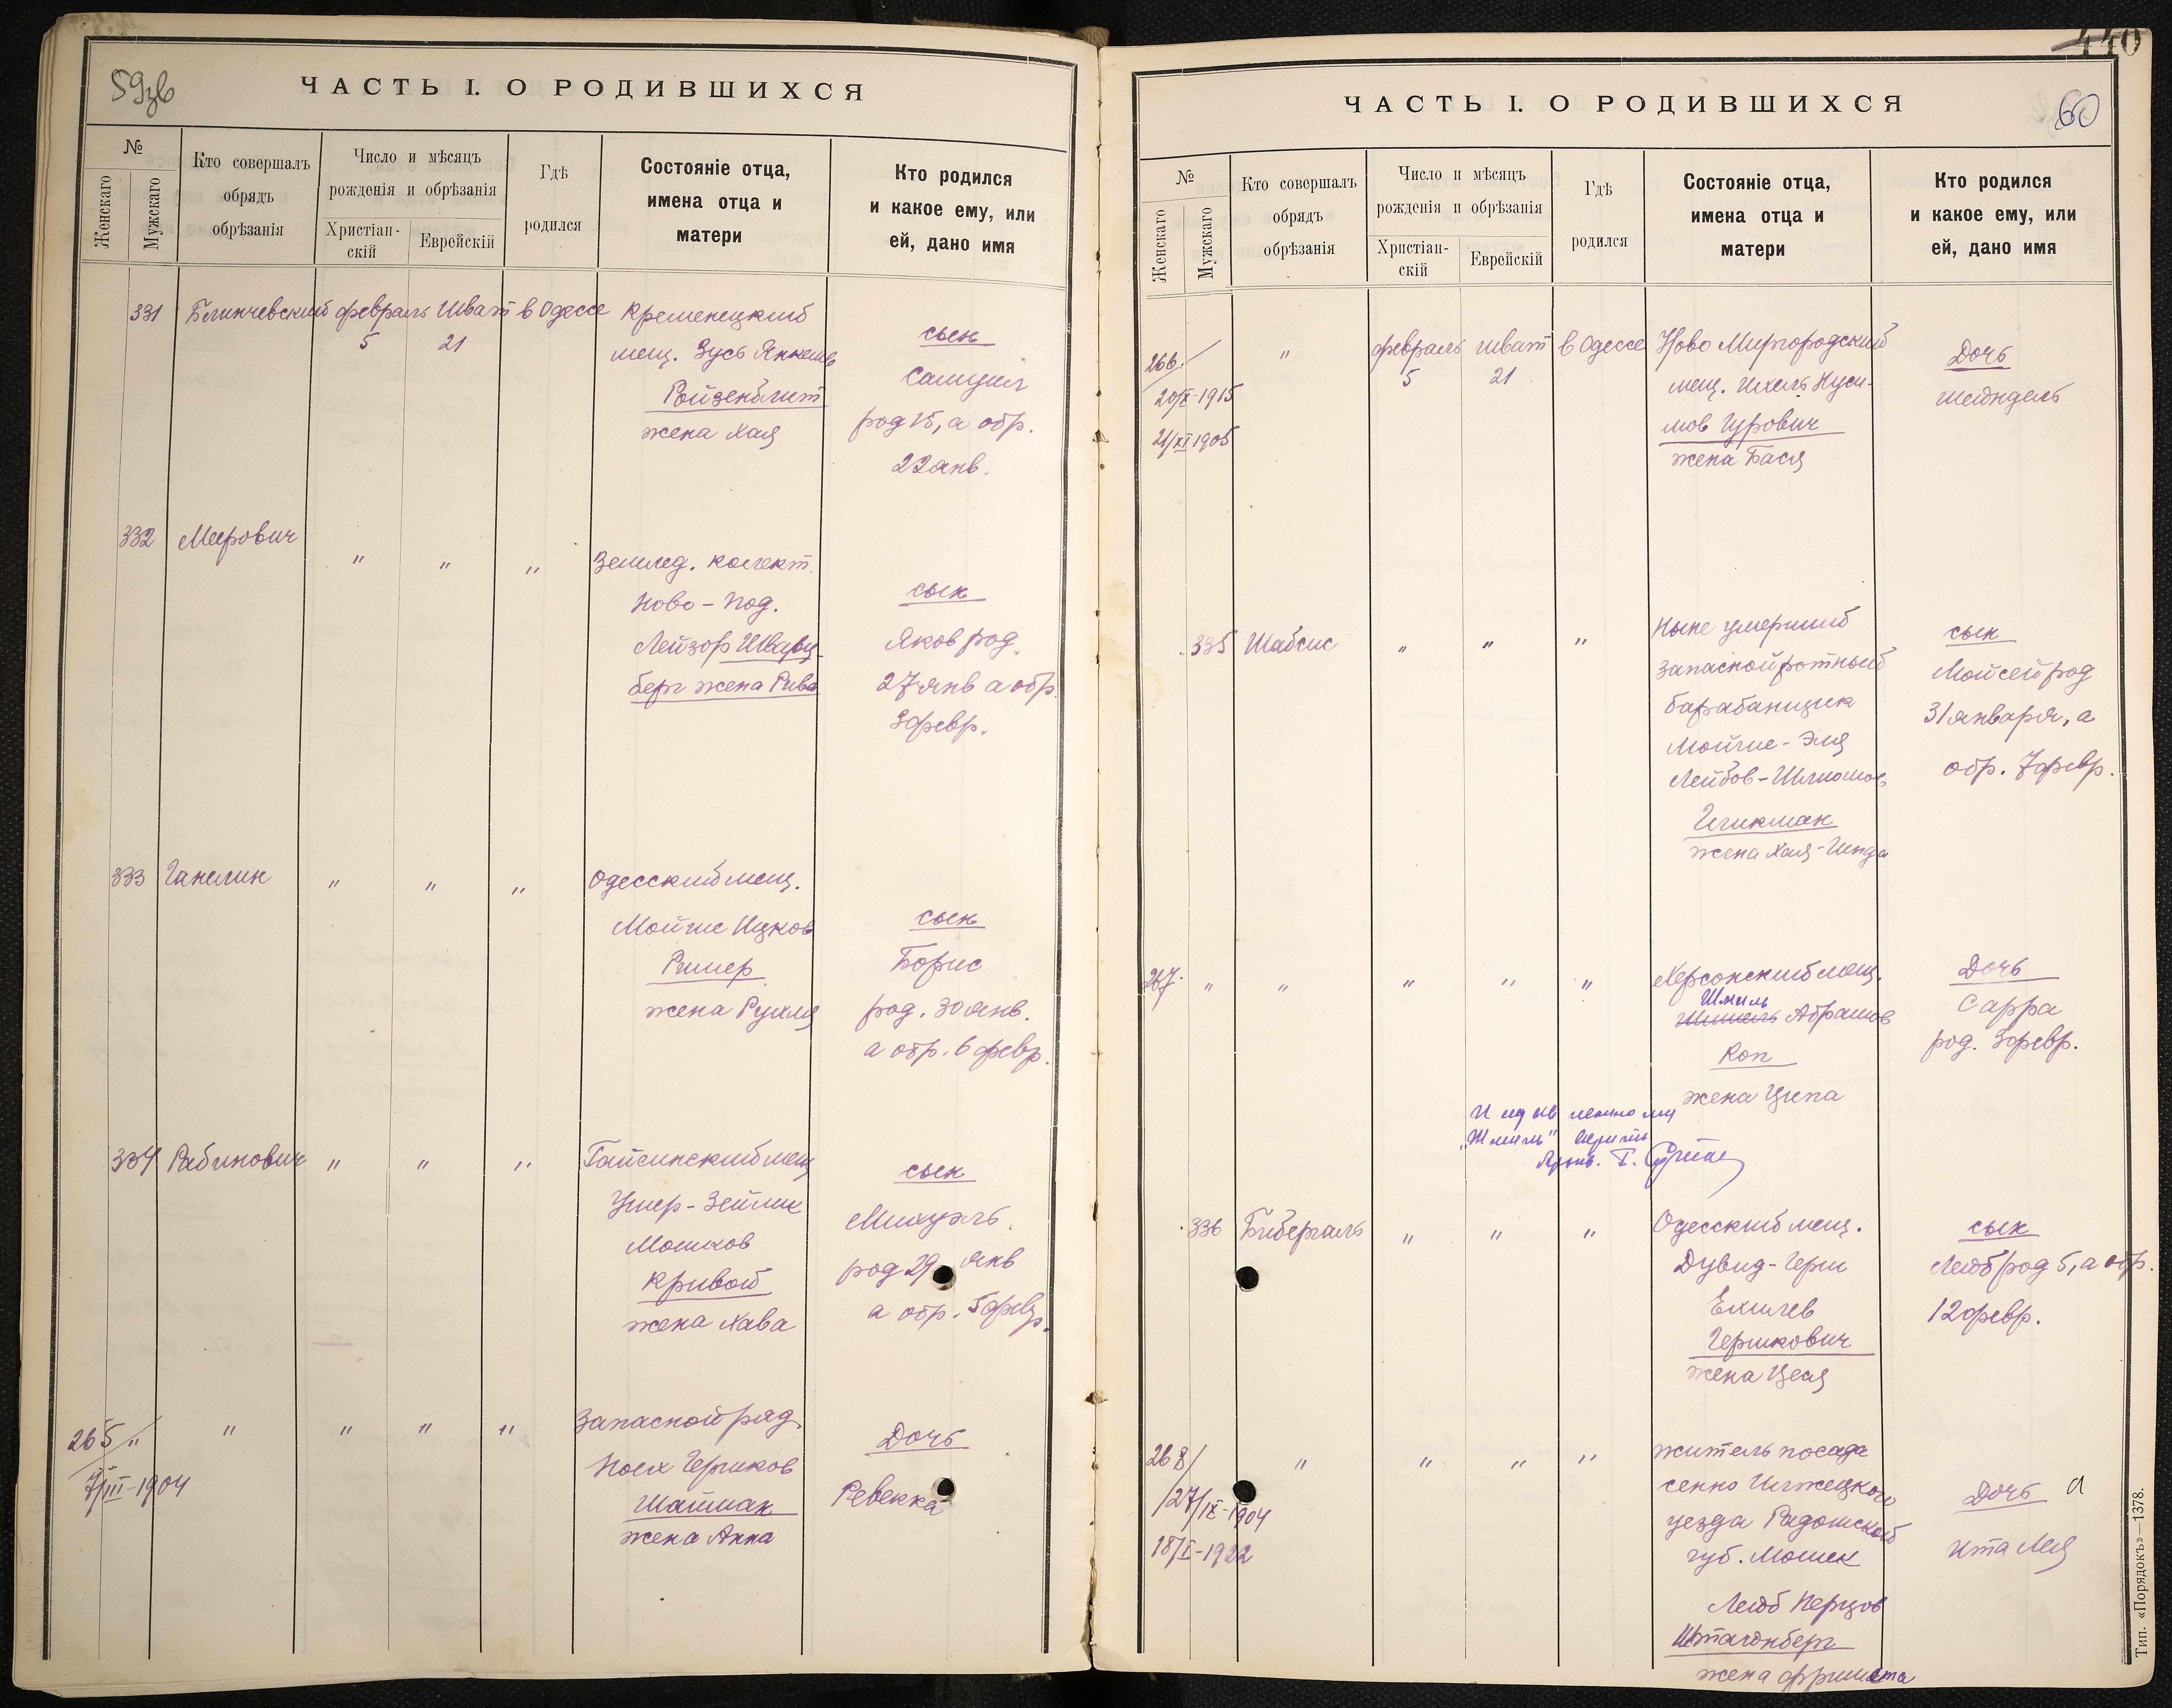 59зв
ЧАСТЬ I. О РОДИВШИХСЯ
№
Женскаго
Мужскаго
Кто совершалъ
обрядъ
обрѣзанія
Число и мѣсяцъ
рожденія и обрѣзанія
Христіан-
скій
Еврейскій
Гдѣ
родился
Состояніе отца,
имена отца и
матери
Кто родился
и какое ему, или
ей, дано имя
331 Блинчевский февраль Шват в Одессе Кременецкий
5 21 мещ. Зусь Янкелев сын
Ройзенблит Самуил
жена Хая род 15, а обр.
22 янв.
332 Меерович " " " Землед. колект.
Ново-Под. сын
Лейзор Шварц- Яков род.
берг жена Рива 27 янв а обр.
3 февр.
333 Ганелин " " " Одесский мещ.
Мойше Ицков сын
Ришер Борис
жена Рухля род. 30 янв.
а обр. 6 февр.
334 Рабинович " " " Гайсинский мещ
Ушер-Зейлик сын
Мошков Михуэль
Кривой род 29 янв
жена Хава а обр. 5 февр.
265/" " " " " Запасной ряд.
7/III-1904 Ноех Гершков Дочь
Шайман Ревекка
жена Анна
440
ЧАСТЬ I. О РОДИВШИХСЯ
60
№
Женскаго
Мужскаго
Кто совершалъ
обрядъ
обрѣзанія
Число и мѣсяцъ
рожденія и обрѣзанія
Христіан-
скій
Еврейскій
Гдѣ
родился
Состояніе отца,
имена отца и
матери
Кто родился
и какое ему, или
ей, дано имя
266/ " февраль шват в Одессе Ново Миргородский Дочь
20/X-1915 5 21 мещ. Ихель Нуси- Шейндель
21/XI 1905 мов Гурович
жена Бася
335 Шабсис " " " Ныне умерший сын
запасной ротный Мойсей род
барабанщик 31 января, а
Мойше-Эля обр. 7 февр.
Лейбов-Шлиомов
Гликман
жена Хая-Гинда
267 " " " " " Херсонский мещ. Дочь
Шмиль
Абрамов Сарра
Коп род. 3 февр.
жена Ципа
"Шмиль"
336 Биберталь " " " Одесский мещ. сын
Дувид-Герш Лейб род 5, а обр.
Ехилев 12 февр.
Гершкович
жена Цеся
268/ " " " " житель посада
/27/IX-1904 сенно Илжецкого Дочь
18/I-1922 уезда Радомской Ита Лея
губ. Мошек
Лейб Перцов
Штагенберг
жена Фримета
Тип. «Порядокъ»—1378.